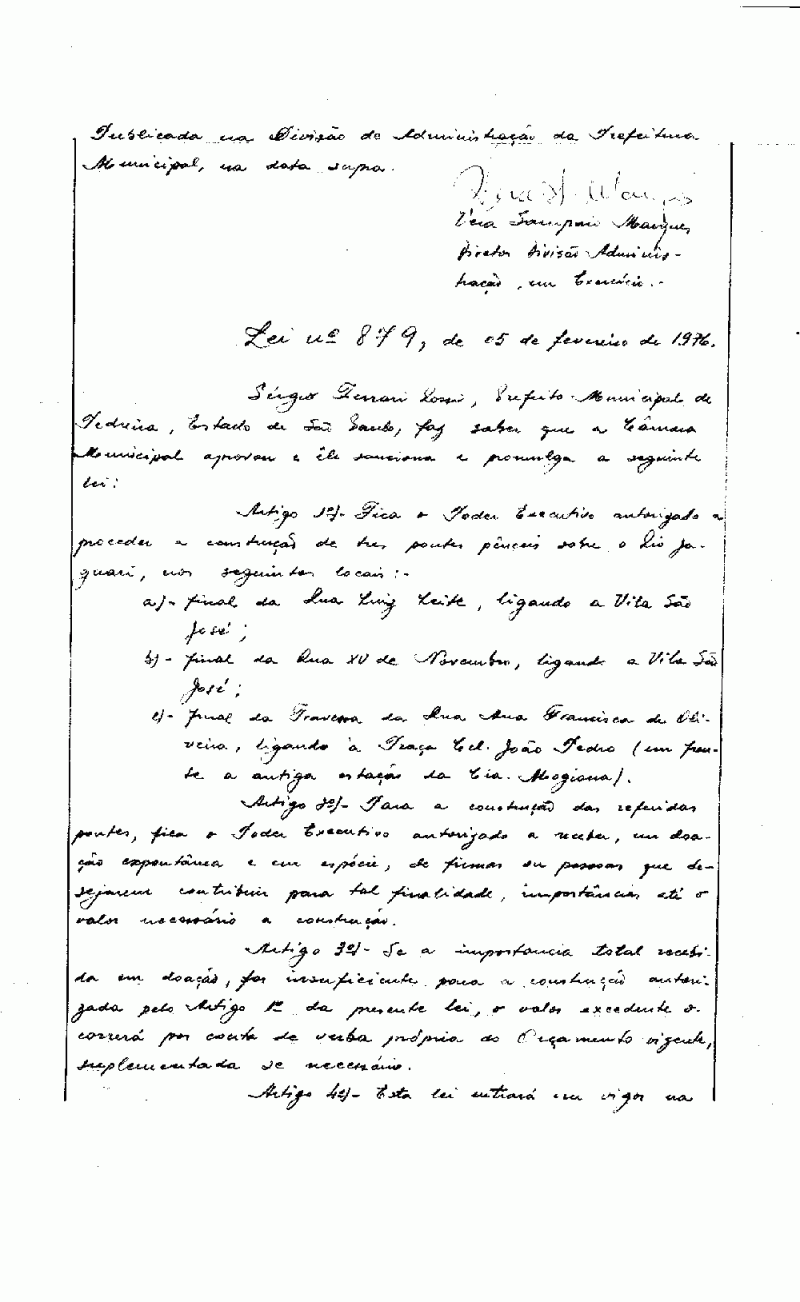 Publicada na Divisão de Administração da Prefeitura
Municipal, na data supra.
Vera Sampaio Marques
Diretor Divisão Adminis-
tração, em Exercício.-
Lei nº 879, de 05 de fevereiro de 1976.
Sérgio Ferrari Rossi, Prefeito Municipal de
Pedreira, Estado de São Paulo, faz saber que a Câmara
Municipal aprovou e êle sanciona e promulga a seguinte
lei:
Artigo 1º)- Fica o Poder Executivo autorizado a
proceder a construção de tres pontes pênceis sobre o Rio Ja-
guari, nos seguintes locais:-
a)- final da Rua Luiz Leite, ligando a Vila São
José;
b)- final da Rua XV de Novembro, ligando a Vila São
José;
c)- final da Travessa da Rua Ana Francisca de Oli-
veira, ligando à Praça Cel. João Pedro (em fren-
te a antiga estação da Cia. Mogiana).
Artigo 2º)- Para a construção das referidas
pontes, fica o Poder Executivo autorizado a receber, em doa-
ção expontânea e em espécie, de firmas ou pessoas que de-
sejarem contribuir para tal finalidade, importâncias até o
valor necessário a construção.
Artigo 3º)- Se a importancia total recebi-
da em doação, for insuficiente para a construção autori-
zada pelo Artigo 1º da presente lei, o valor excedente o-
correrá por conta de verba própria do Orçamento vigente,
suplementada se necessário.
Artigo 4º)- Esta lei entrará em vigor na